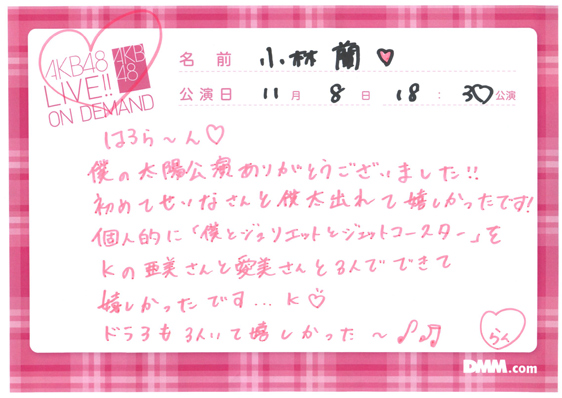 AKB48
LIVE!!
ON DEMAND
AKB
48
名前 小林蘭♥
公演日 11月8日 18:30公演
はろら〜ん♡
僕の太陽公演ありがとうございました!!
初めてせいなさんと僕太出れて嬉しかったです!
個人的に「僕とジュリエットとジェットコースター」を
Kの亜美さんと愛美さんと3人でできて
嬉しかったです...K♡
ドラ3も3人いて嬉しかった〜♪♫
らん
DMM.com